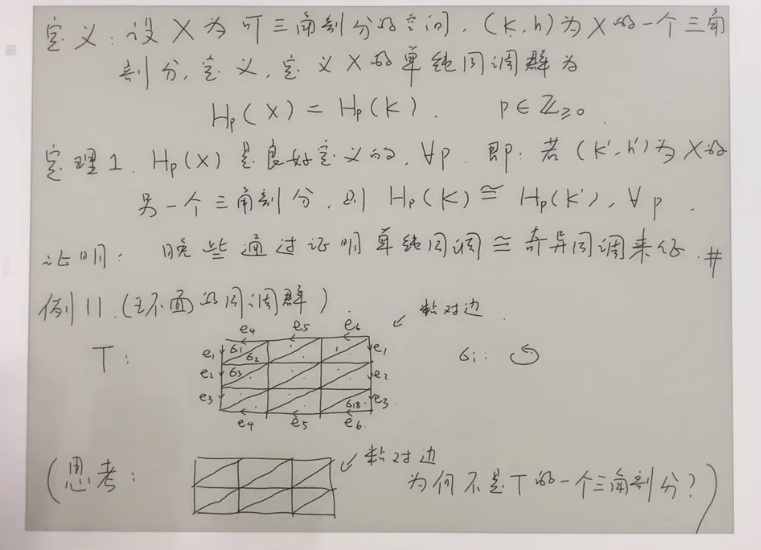 定义:设 X 为可三角剖分的空间,(K,h) 为 X 的一个三角
剖分,定义,定义 X 的单纯同调群为
Hp(X) = Hp(K). p∈Z≥0
定理1. Hp(X) 是良好定义的, ∀p. 即:若 (K',h') 为 X 的
另一个三角剖分,则 Hp(K) ≅ Hp(K'), ∀p.
证明: 晚些通过证明单纯同调≅奇异同调来证. #
例11.(环面的同调群).
e4 e5 e6 粘对边
T: e1 σ1 σ2 e1 σi: ↺
e2 σ3 e2
e3 σ18 e3
e4 e5 e6
(思考: 粘对边
为何不是T的一个三角剖分?)